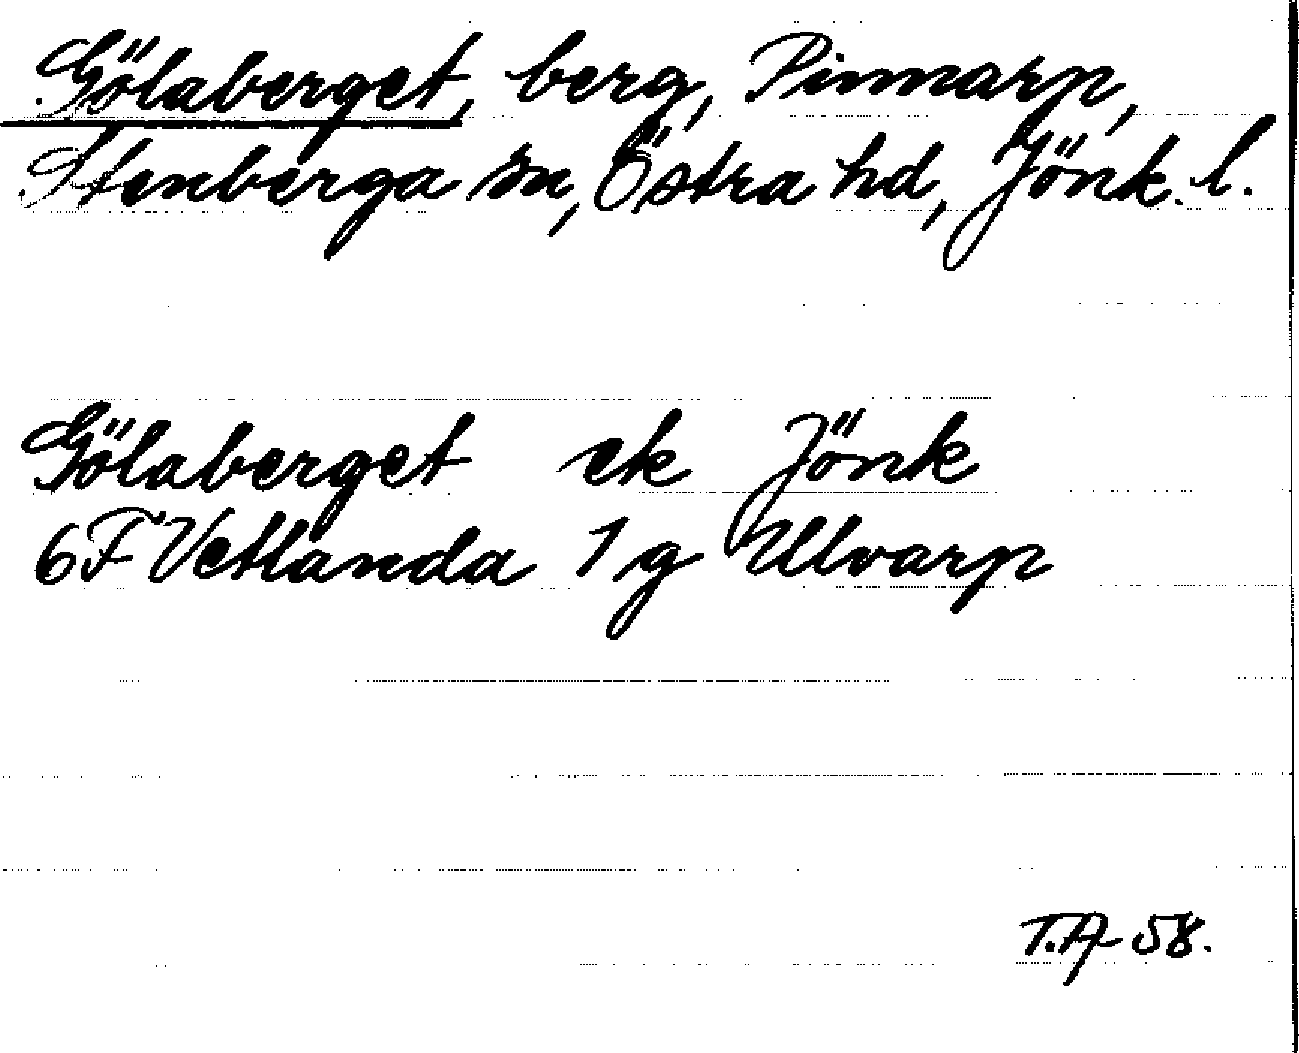 Gölaberget, berg, Pinnarp,
Stenberga sn, Östra hd, Jönk. l.
Gölaberget ek Jönk
6F Vetlanda 1 g Ulvarp
T.A 58.